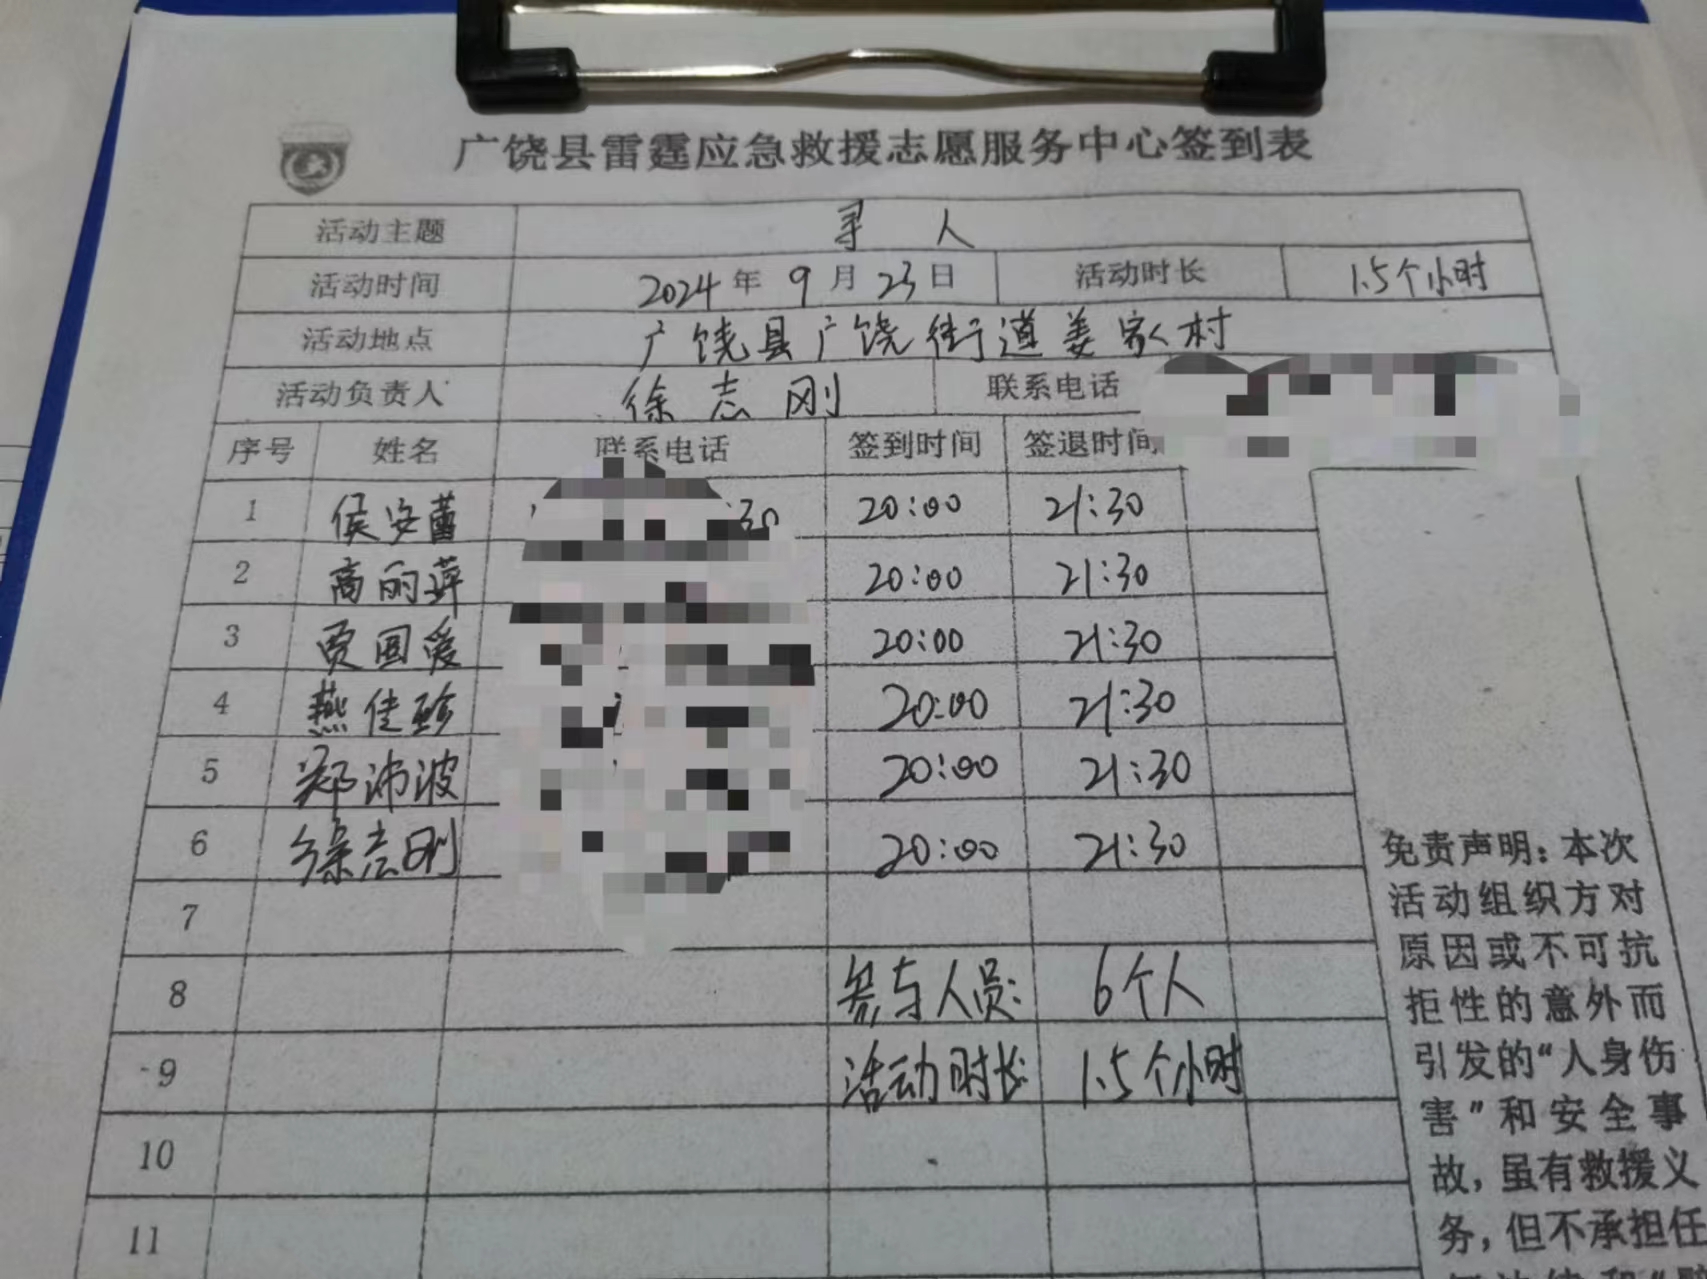 广饶县雷霆应急救援志愿服务中心签到表
活动主题 寻人
活动时间 2024年9月23日 活动时长 1.5个小时
活动地点 广饶县广饶街道姜家村
活动负责人 徐志刚 联系电话
序号 姓名 联系电话 签到时间 签退时间
1 侯安蕾 30 20:00 21:30
2 高丽萍 20:00 21:30
3 贾国爱 20:00 21:30
4 燕佳珍 20:00 21:30
5 郑沛波 20:00 21:30
6 徐志刚 20:00 21:30
7
8 参与人员: 6个人
9 活动时长: 1.5个小时
10
11
免责声明:本次
活动组织方对
原因或不可抗
拒性的意外而
引发的“人身伤
害”和安全事
故,虽有救援义
务,但不承担任